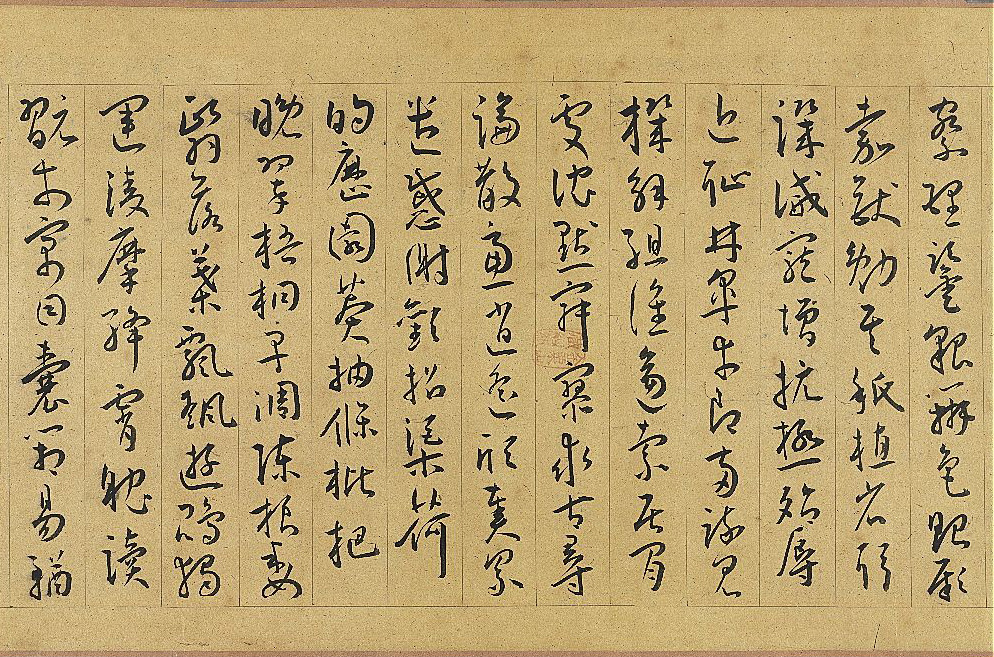 察理鑒貌辨色貽厥
嘉猷勉其祗植省躬
譏誡寵增抗極殆辱
近恥林皋幸即兩疏見
機解組誰逼索居閑
處沈默寂寥求古尋
論散慮逍遙欣奏累
遣慼謝歡招渠荷
的歷園莽抽條枇杷
晚翠梧桐早凋陳根委
翳落葉飄颻遊鵾獨
運凌摩絳霄耽讀
翫市寓目囊箱易輶